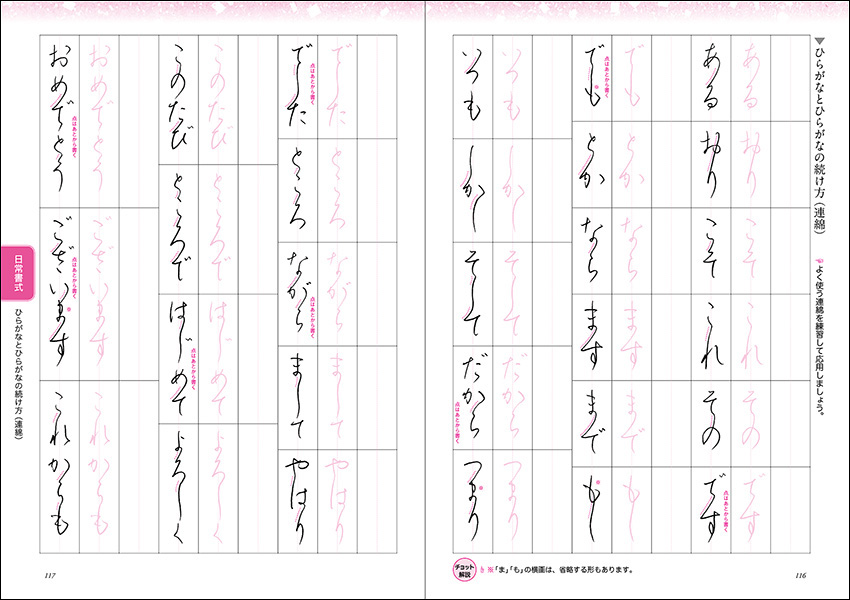 ▼ひらがなとひらがなの続け方(連綿)
よく使う連綿を練習して応用しましょう。
ある おり こそ これ その です
ある おり こそ これ その です
点はあとから書く
でも とか なら ます まで もし
点はあとから書く
でも とか なら ます まで もし
※
※
いつも しかし そして だから つまり
いつも しかし そして だから つまり
点はあとから書く
※
チョット解説
※「ま」「も」の横画は、省略する形もあります。
116
でした ところ ながら まして やはり
点はあとから書く
でした ところ ながら まして やはり
点はあとから書く
このたび ところで はじめて よろしく
このたび ところで はじめて よろしく
点はあとから書く
おめでとう ございます これからも
点はあとから書く
おめでとう ございます これからも
点はあとから書く
※
日常書式
ひらがなとひらがなの続け方(連綿)
117